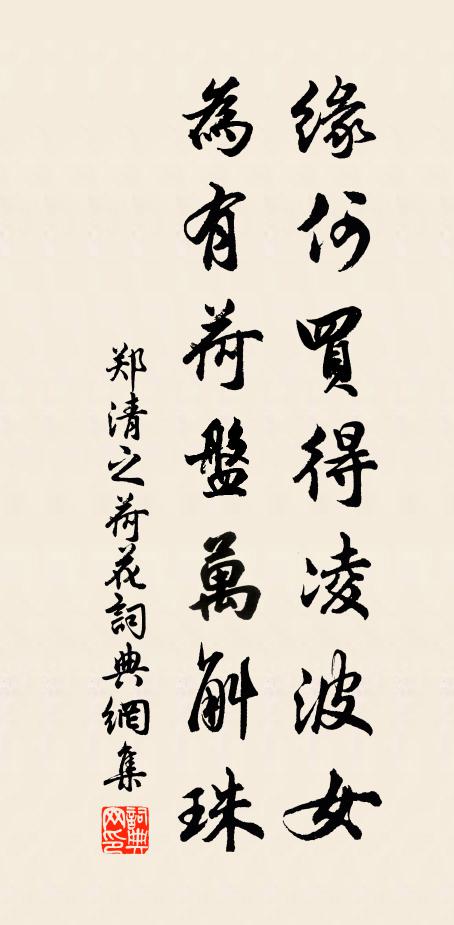 緣何買得凌波女
為有荷盤萬斛珠
郑清之荷花詞典網集
詞典网印